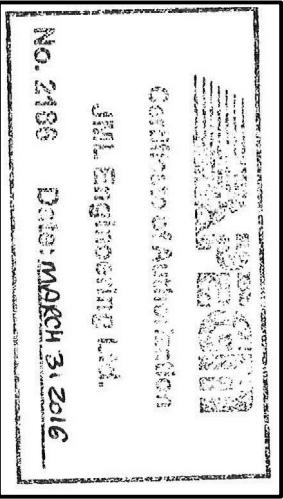 APEGM
Certificate of Authorization
JML Engineering Ltd.
No. Date: MARCH 31 2016